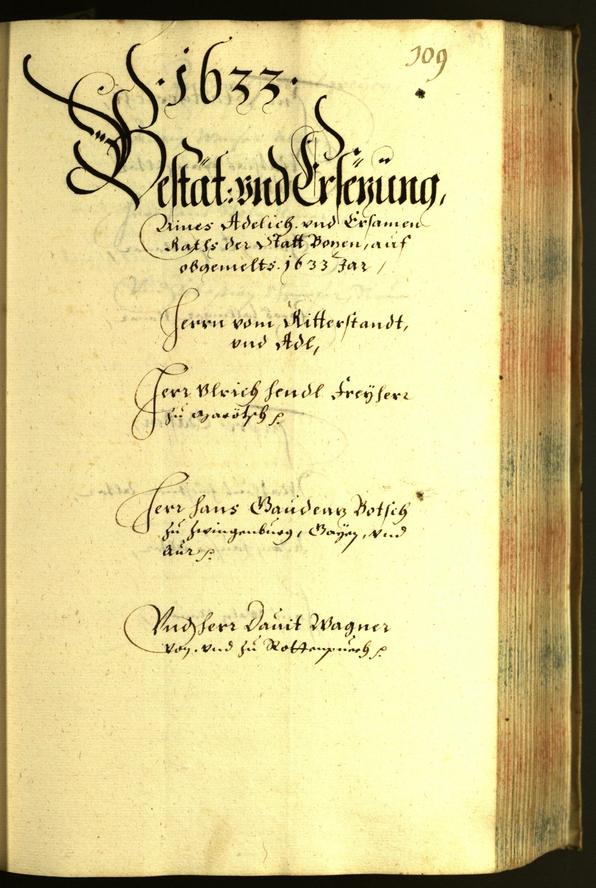 109
·1633·
Bestät: vnd Ersezung,
Aines Adelich. vnd Ersamen
Raths der Statt Bozen, auf
obgemelts. 1633 Jar /
Herrn vom Ritterstandt,
vnd Adl,
Herr Vlrich Hendl Freyherr
zu
Herr Hans Gaudenz Botsch
zu Zwingenburg, Gayen, vnd
Aur p.
Vnd Herr Dauit Wagner
von. vnd zu Rottenpuech p.